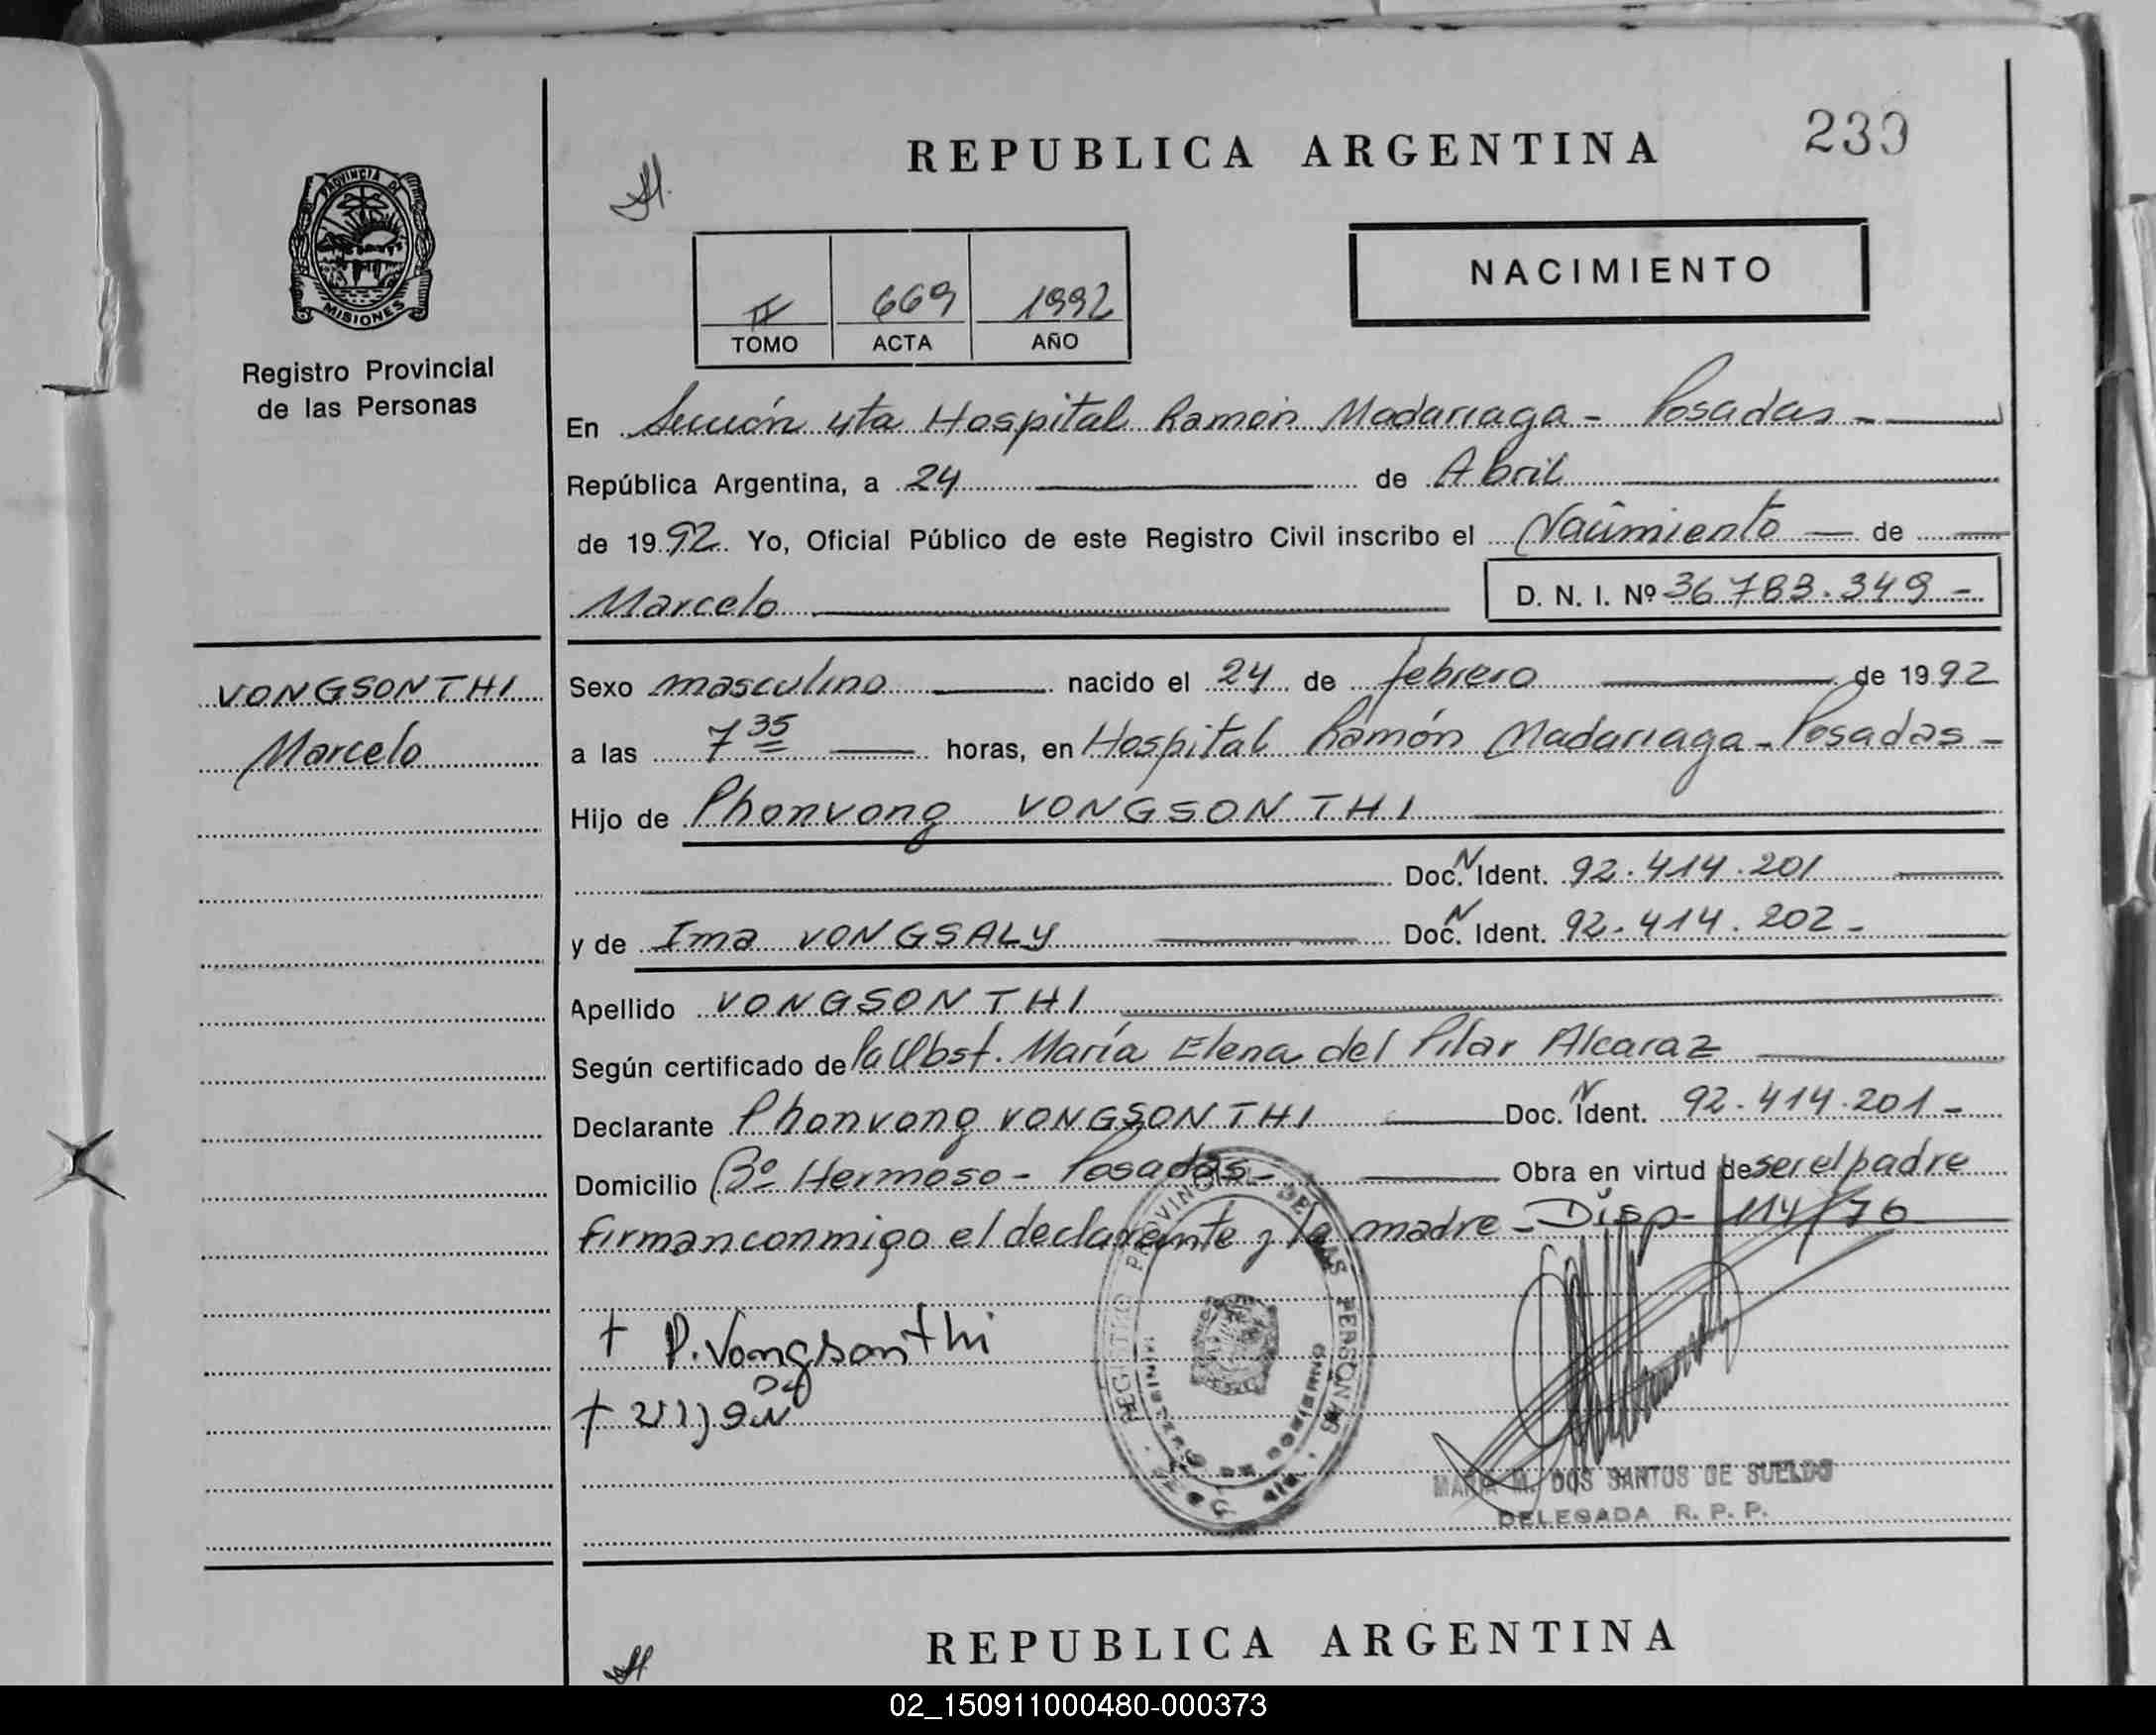 REPUBLICA ARGENTINA
233
PROVINCIA DE
MISIONES
Registro Provincial
de las Personas
II 669 1992
TOMO ACTA AÑO
NACIMIENTO
En Sección 4ta Hospital Ramón Madariaga - Posadas -
República Argentina, a 24 de Abril
de 1992. Yo, Oficial Público de este Registro Civil inscribo el Nacimiento de
Marcelo D. N. I. Nº 36.783.349 -
VONGSONTHI
Marcelo
Sexo masculino nacido el 24 de febrero de 1992
a las 7 35 horas, en Hospital Ramón Madariaga - Posadas -
Hijo de Phonvong VONGSONTHI
Doc. N Ident. 92.414.201
y de Ima VONGSALY Doc. N Ident. 92.414.202 -
Apellido VONGSONTHI
Según certificado de la Obst. María Elena del Pilar Alcaraz
Declarante Phonvong VONGSONTHI Doc. N Ident. 92.414.201 -
Domicilio Bº Hermoso - Posadas - Obra en virtud de ser el padre
firman conmigo el declarante y la madre - Disp. 114/76
P. Vongsonthi
REGISTRO PROVINCIAL DE LAS PERSONAS
MINISTERIO DE GOBIERNO
MARIA M. DOS SANTOS DE SUELDO
DELEGADA R. P. P.
REPUBLICA ARGENTINA
02_150911000480-000373